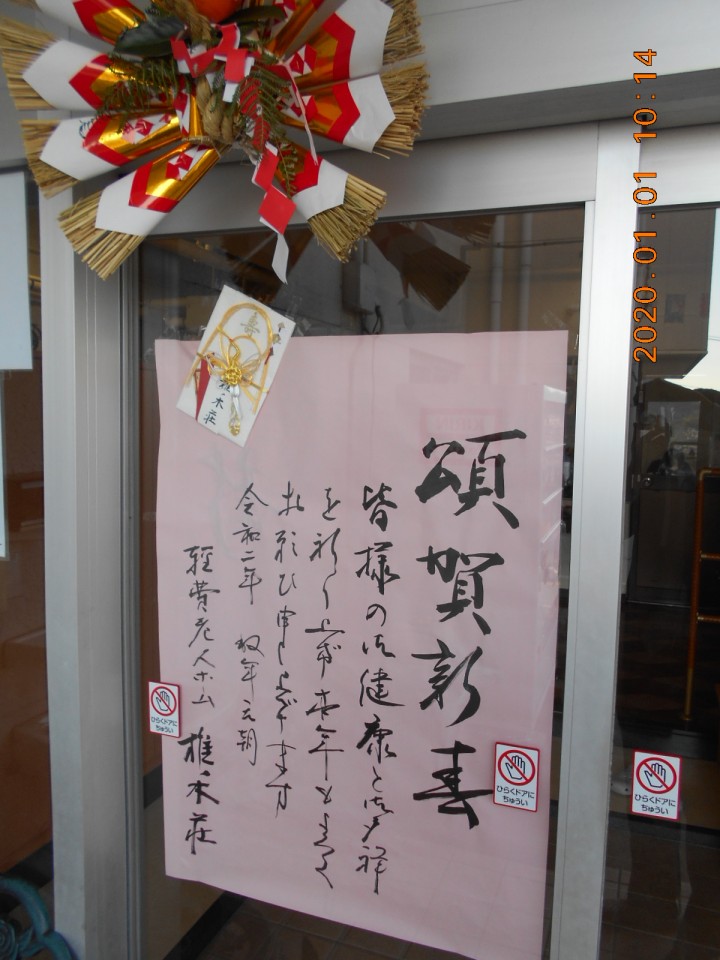 頌賀新春
皆様の御健康と御多祥
を祈り上げ本年もよろしく
お願ひ申し上げます
令和二年 敬年元朝
軽費老人ホーム 椎禾荘
寿
ひらくドアに
ちゅうい
ひらくドアに
ちゅうい
ひらくドアに
ちゅうい
2020.01.01 10:14